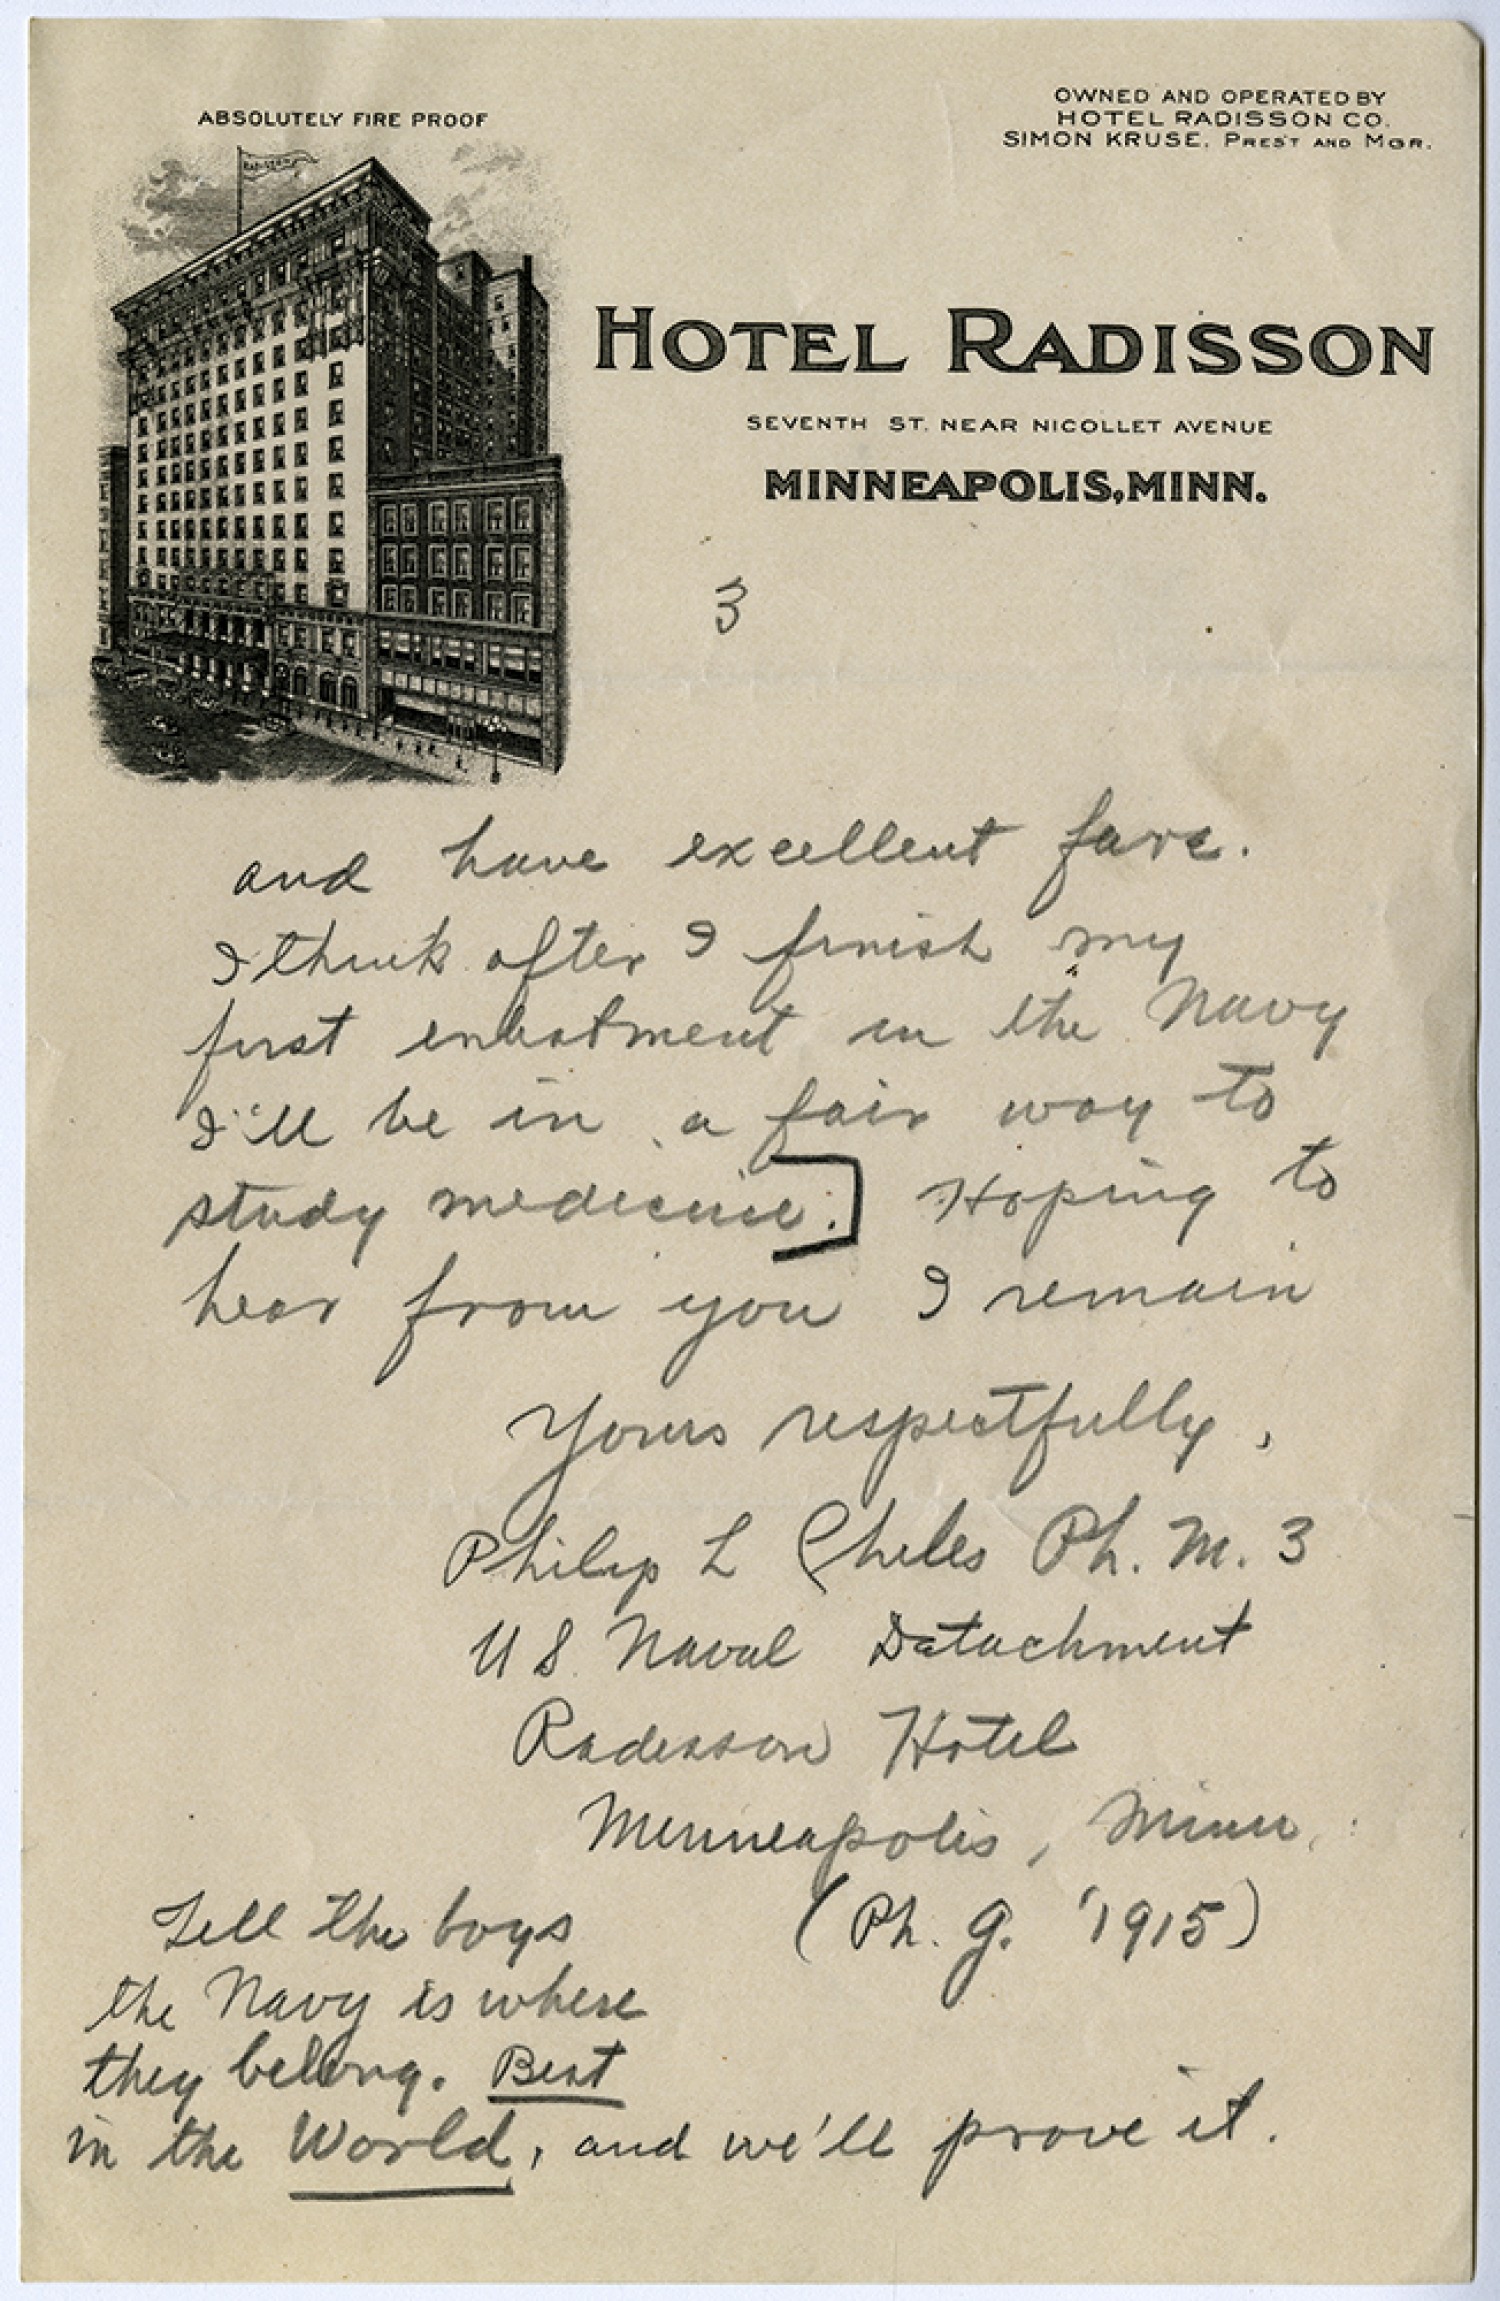 ABSOLUTELY FIRE PROOF
RADISSON
OWNED AND OPERATED BY
HOTEL RADISSON CO.
SIMON KRUSE, PREST AND MGR.
HOTEL RADISSON
SEVENTH ST. NEAR NICOLLET AVENUE
MINNEAPOLIS, MINN.
3
and have excellent fare.
I think after I finish my
first enlistment in the Navy
I'll be in a fair way to
study medicine.] Hoping to
hear from you I remain
Yours respectfully,
Philip L Cheles Ph. M. 3
U S Naval Datachment
Radisson Hotel
Minneapolis, Minn.
(Ph. G. '1915)
Tell the boys
the Navy is where
they belong. Best
in the World, and we'll prove it.